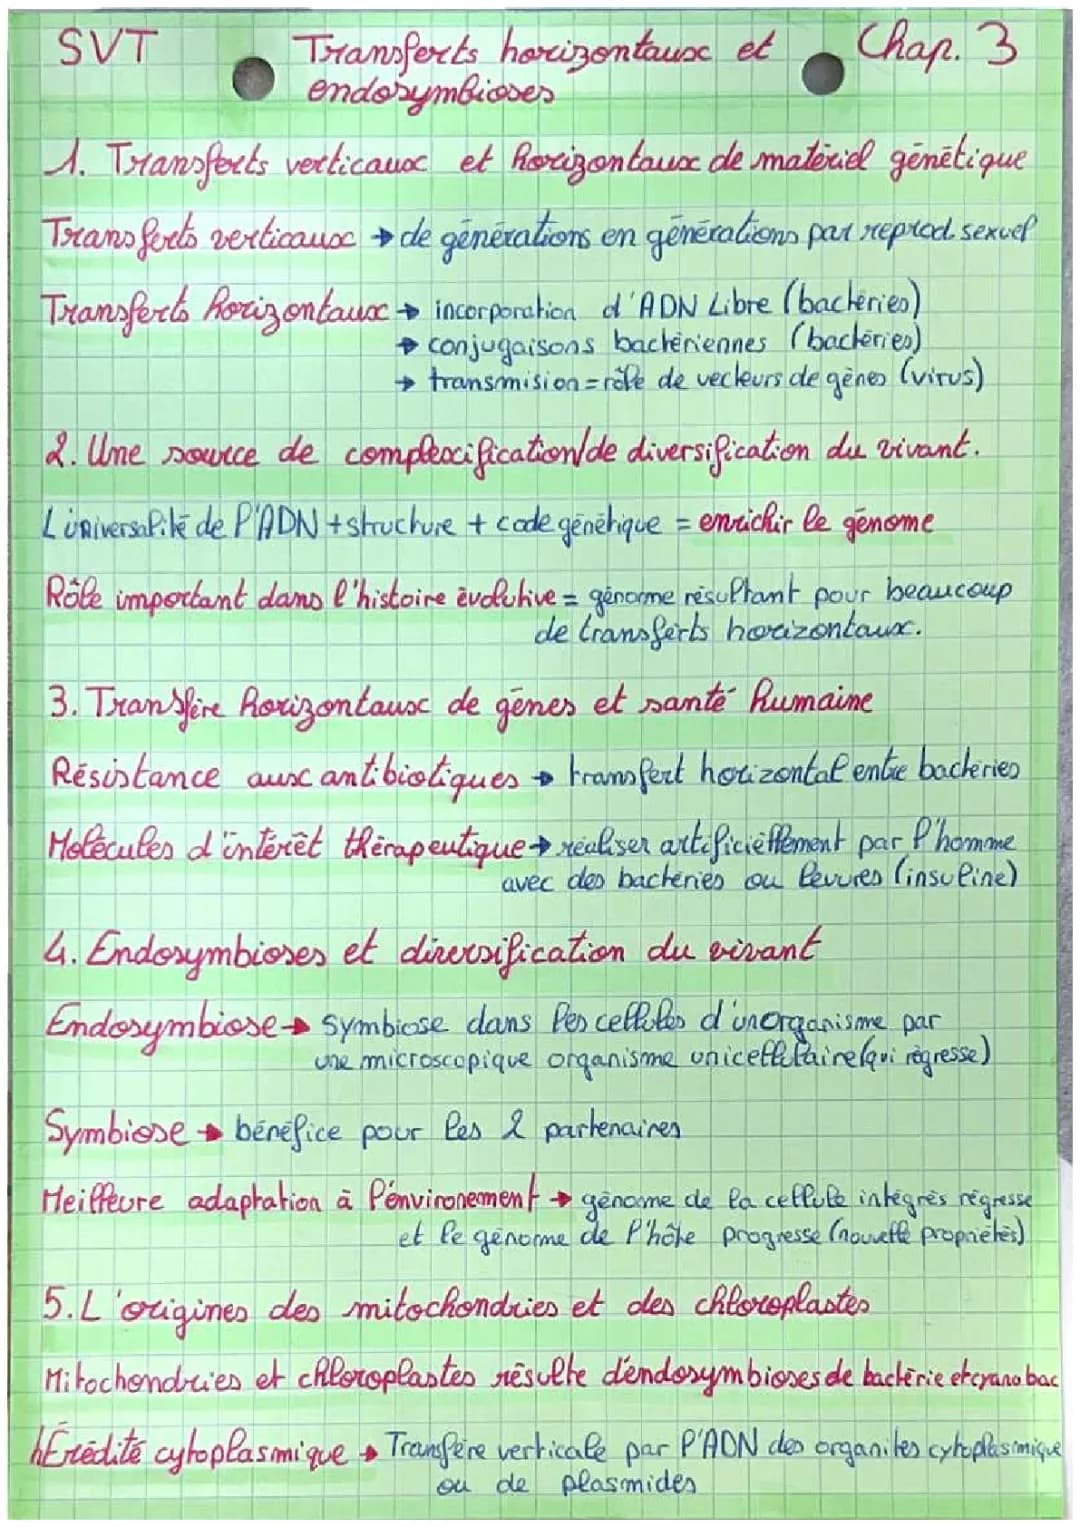 SVT Transferts horizontaux et Chap. 3
endosymbioses
1. Transferts verticaux et horizontaux de matériel génétique
Transferts verticaux → de générations en générations par reprod. sexuel
Transferts horizontaux → incorporation d'ADN Libre (bactéries)
→ conjugaisons bactériennes (bactéries)
→ transmision = rôle de vecteurs de gènes (virus)
2. Une source de complexification/de diversification du vivant.
L'universalité de l'ADN + structure + code génétique = enrichir le génome
Rôle important dans l'histoire évolutive = génome résultant pour beaucoup
de transferts horizontaux.
3. Transfère horizontaux de gènes et santé humaine
Résistance aux antibiotiques → transfert horizontal entre bactéries
Molécules d'intérêt thérapeutique → réaliser artificiellement par l'homme
avec des bactéries ou levures (insuline)
4. Endosymbioses et diversification du vivant
Endosymbiose → symbiose dans les cellules d'un organisme par
une microscopique organisme unicellulaire (qui régresse)
Symbiose → bénéfice pour les 2 partenaires
Meilleure adaptation à l'environement → génome de la cellule intégrés régresse
et le génome de l'hôte progresse (nouvelle propriétés)
5. L'origines des mitochondries et des chloroplastes
Mitochondries et chloroplastes résulte d'endosymbioses de bactérie et cyano bac
hÉrédité cytoplasmique → Transfère verticale par l'ADN des organites cytoplasmique
ou de plasmides